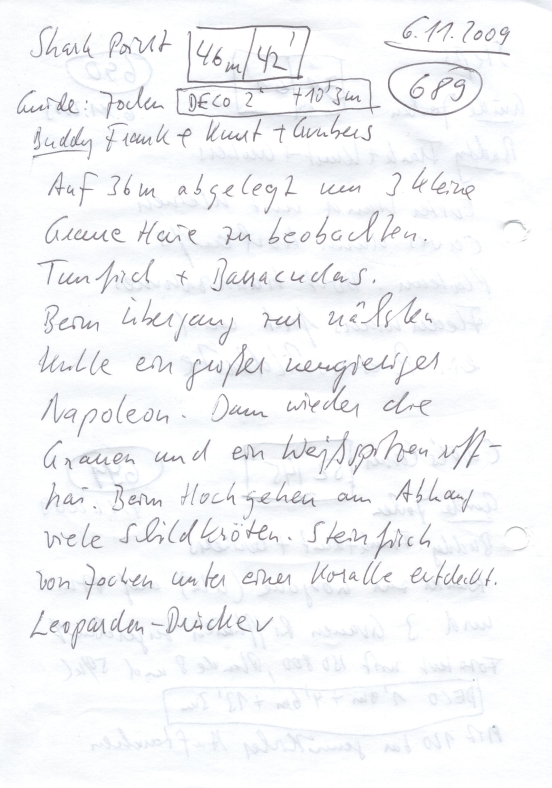 Shark Point 46m/42' 6.11.2009
689
Guide: Jochen DECO 2' +10'3m
Buddy Frank + Knut + Gunbers
Auf 36m abgelegt um 3 kleine
Graue Haie zu beobachten.
Tunfisch + Barracudas.
Beim Übergang zur nächsten
Kuhle ein großer neugieriger
Napoleon. Dann wieder die
Grauen und ein Weißspitzen riff-
hai. Beim Hochgehen am Abhang
viele Schildkröten. Steinfisch
von Jochen unter einer Koralle entdeckt.
Leoparden-Drücker